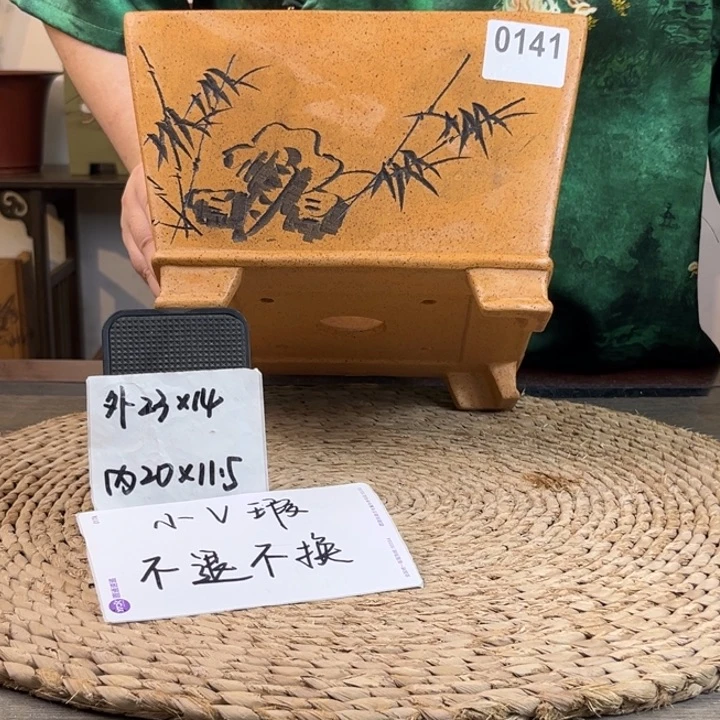 0141
外23×14
内20×11.5
小V瑕
不退不换